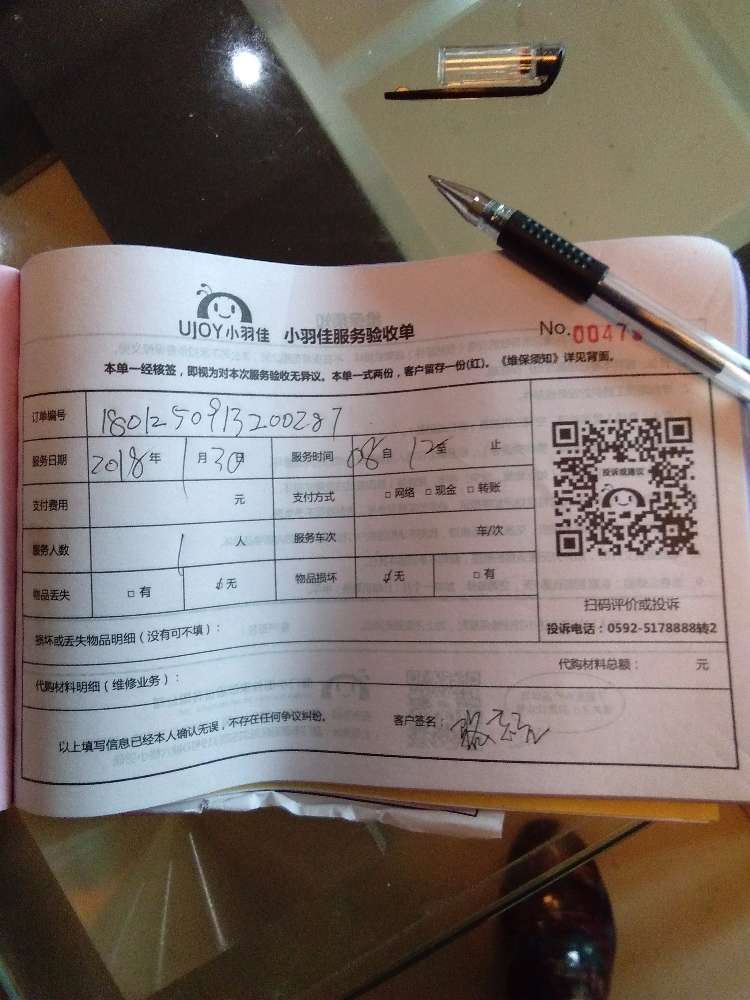 UJOY小羽佳 小羽佳服务验收单 No.0047
本单一经核签，即视为对本次服务验收无异议。本单一式两份，客户留存一份(红)。《维保须知》详见背面。
订单编号 1801250913200287
服务日期 2018年 1月30日 服务时间 08自 12至 止
支付费用 元 支付方式 □网络 □现金 □转账
服务人数 1 人 服务车次 车/次
物品丢失 □有 □无 物品损坏 □无 □有
投诉或建议
扫码评价或投诉
投诉电话：0592-5178888转2
损坏或丢失物品明细（没有可不填）：
代购材料明细（维修业务）： 代购材料总额： 元
以上填写信息已经本人确认无误，不存在任何争议纠纷。 客户签名：